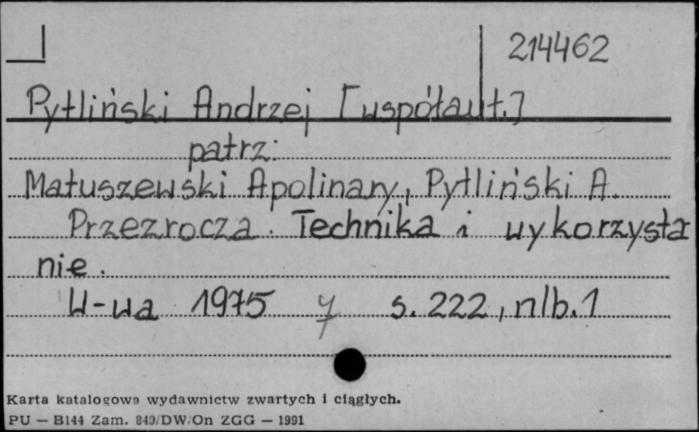 214462
Pytliński Andrzej [współaut.]
patrz:
Matuszewski Apolinary, Pytliński A.
Przezrocza. Technika i wykorzysta
nie.
W-wa 1975 y s. 222, nlb. 1
Karta katalogowa wydawnictw zwartych i ciągłych.
PU — B144 Zam. 849/DW/On ZGG — 1991